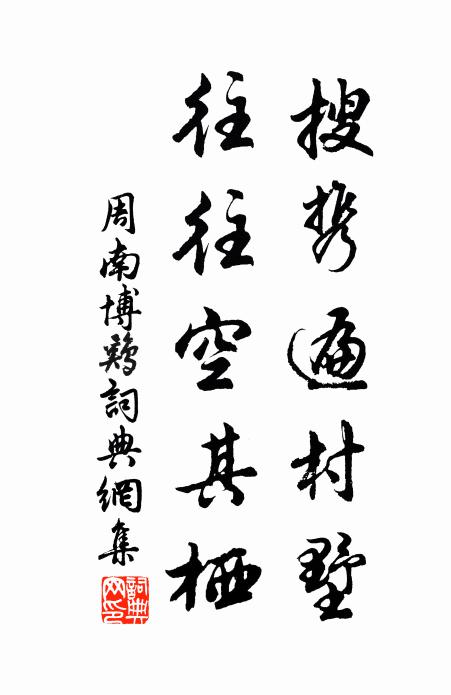 搜携遍村墅
往往空其栖
周南博鷄詞典網集
詞典网印